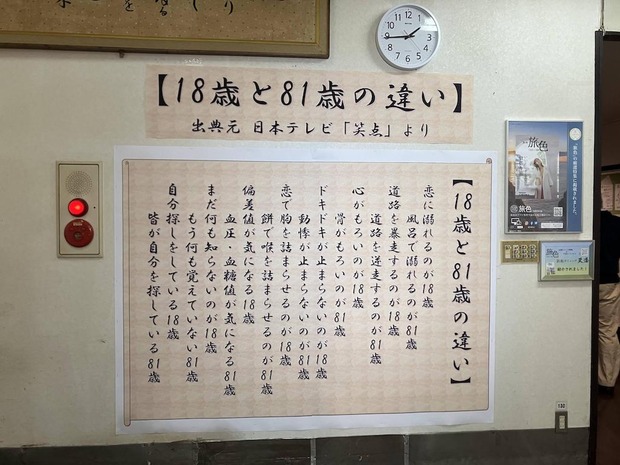 【18歳と81歳の違い】
出典元 日本テレビ「笑点」より
【18歳と81歳の違い】
恋に溺れるのが18歳
風呂で溺れるのが81歳
道路を暴走するのが18歳
道路を逆走するのが81歳
心がもろいのが18歳
骨がもろいのが81歳
ドキドキが止まらないのが18歳
動悸が止まらないのが81歳
恋で胸を詰まらせるのが18歳
餅で喉を詰まらせるのが81歳
偏差値が気になる18歳
血圧・血糖値が気になる81歳
まだ何も知らないのが18歳
もう何も覚えていない81歳
自分探しをしている18歳
皆が自分を探している81歳
旅色
旅色
130